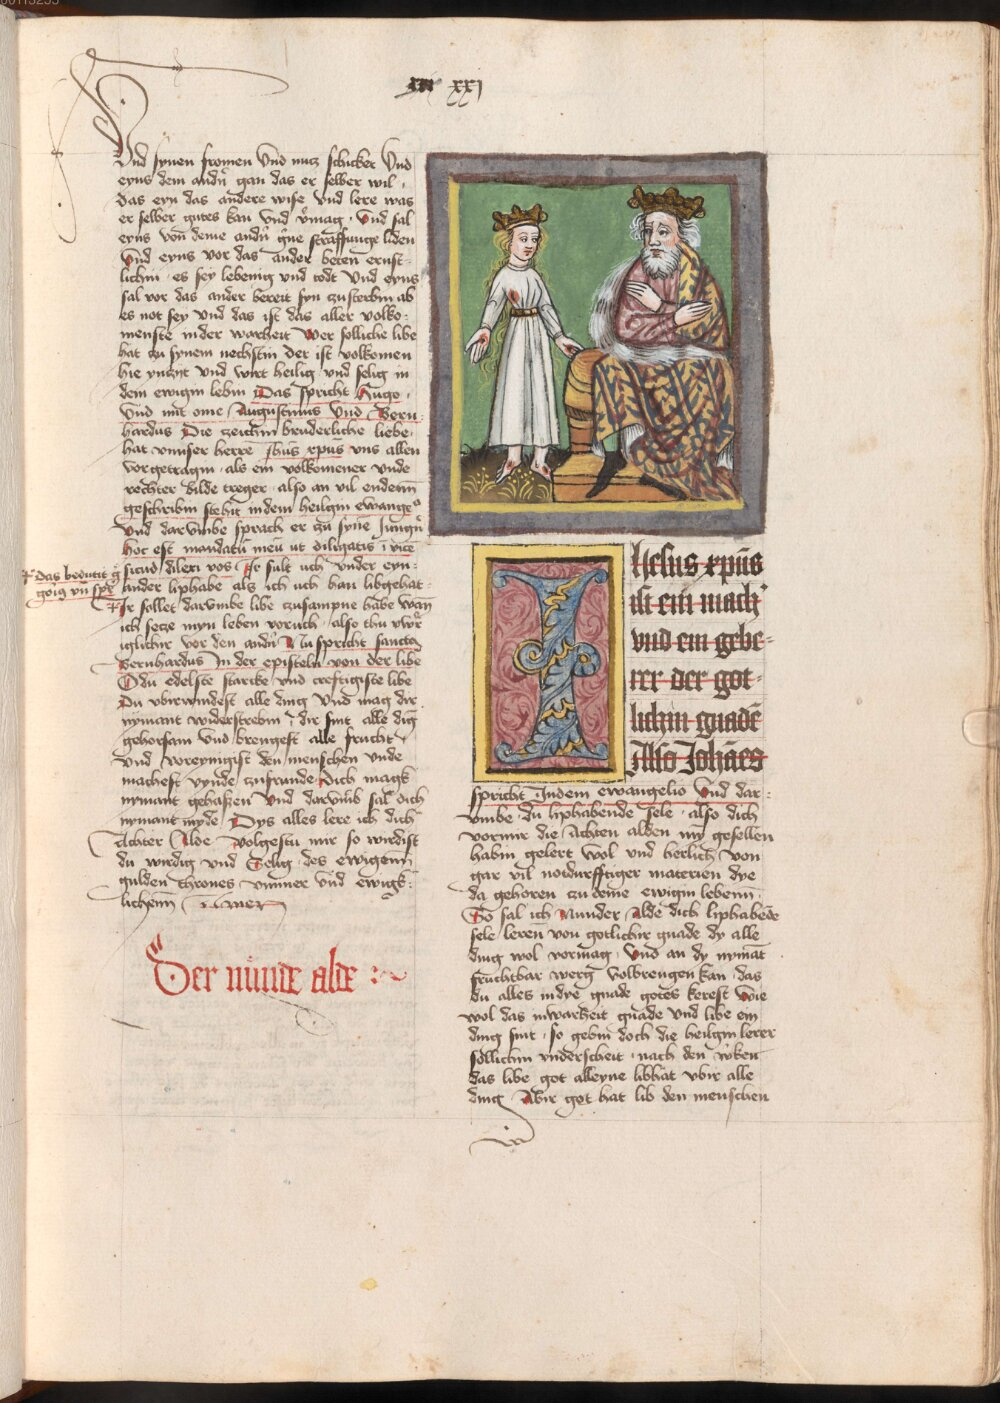 xxi
Vnd synen fromen Vnd nutz schicket Vnd
eyns dem andn̄ gan das er selber wil ·
das eyn das andere wise vnd lere was
er selber gutes kan vnd v̊mag · Vnd sal
eyns von deme andn̄ g̊ne straffunge liden
Vnd eyns vor das ander beten ernst-
lichin · es sey lebenig vnd todt Vnd eyns
sal vor das ander bereit syn zu sterbin ab
es not sey Vnd das ist das aller volko-
menste in der warheit Wer solliche libe
hat zu synem nechstin der ist volkomen
hie ynczijt vnd wirt heilig vnd selig in
dem ewigin lebin Das spricht Hugo ·
Vnd mit ome Augustinus Vnd Bern-
hardus Die zeichin bruderliche liebe
hat vnnser herre ihūs xpūs vns allen
vorgetragin · als ein volkomener vnde
rechter bilde treger · also an vil endenn̄
geschribin stehit in dem heilgin ewange°
Vnd darvmbe sprach er zu syne jungn̄
Hoc est mandatū meū ut diligatis īvicē
sicud dilexi vos Ir sult uch vnder eyn-
ander liphabe als ich uch han libgehat ·
das bedutit g̊
goi9 vn̄ spr̄
Ir sollet darvmbe libe zusampne habe wan̄
ich setze myn leben vor uch · also thu uwr̄
iglichir vor den andn̄ Nu spricht sanctus
Bernhardus In der episteln von der libe
O du edelste starcke vnd creftigiste libe
Du vbirwindest alle ding Vnd mag dir
nymant widerstrebin · dir sint alle dīg
gehorsam vnd brengest alle frucht
Vnd voreynigist den menschen vnde
machest vynde zu frunde Dich mag̊
nymant gehassen Vnd darvmb sal dich
nymant myde Dys alles lere ich dich
Achter Alde volgestu mir so wirdist
du wirdig vnd Selig des ewigenn̄
gulden thrones ymmer vnd ewig-
lichenn̄ Amen
Der nūnde alde :~
IHesus xpūs
ist ein mach
vnd ein gebe-
rer der got-
lichin gnadē
Also Johāēs
spricht In dem ewangelio Vnd dar-
vmbe du liphabende sele · also dich
vormir die Achten alden my gesellen
habin gelert wol vnd herlich von
gar vil notdurfftiger materien dye
da gehoren zu deme ewigin lebenn̄ ·
So sal ich Nunder Alde dich liphabēde
sele leren von gotlichir gnade dy alle
ding wol vormag · Vnd an dy nymāt
fruchtbar werg̊ volbrengen kan · das
du alles in dye gnade gotes kerest Wie
wol das in warheit gnade vnd libe ein
ding sint · so gebin doch die heilgin lerer
sollichin vnderscheit · nach den ẘken
das libe got alleyne libhat vbir alle
ding Abir got hat lib den menschen